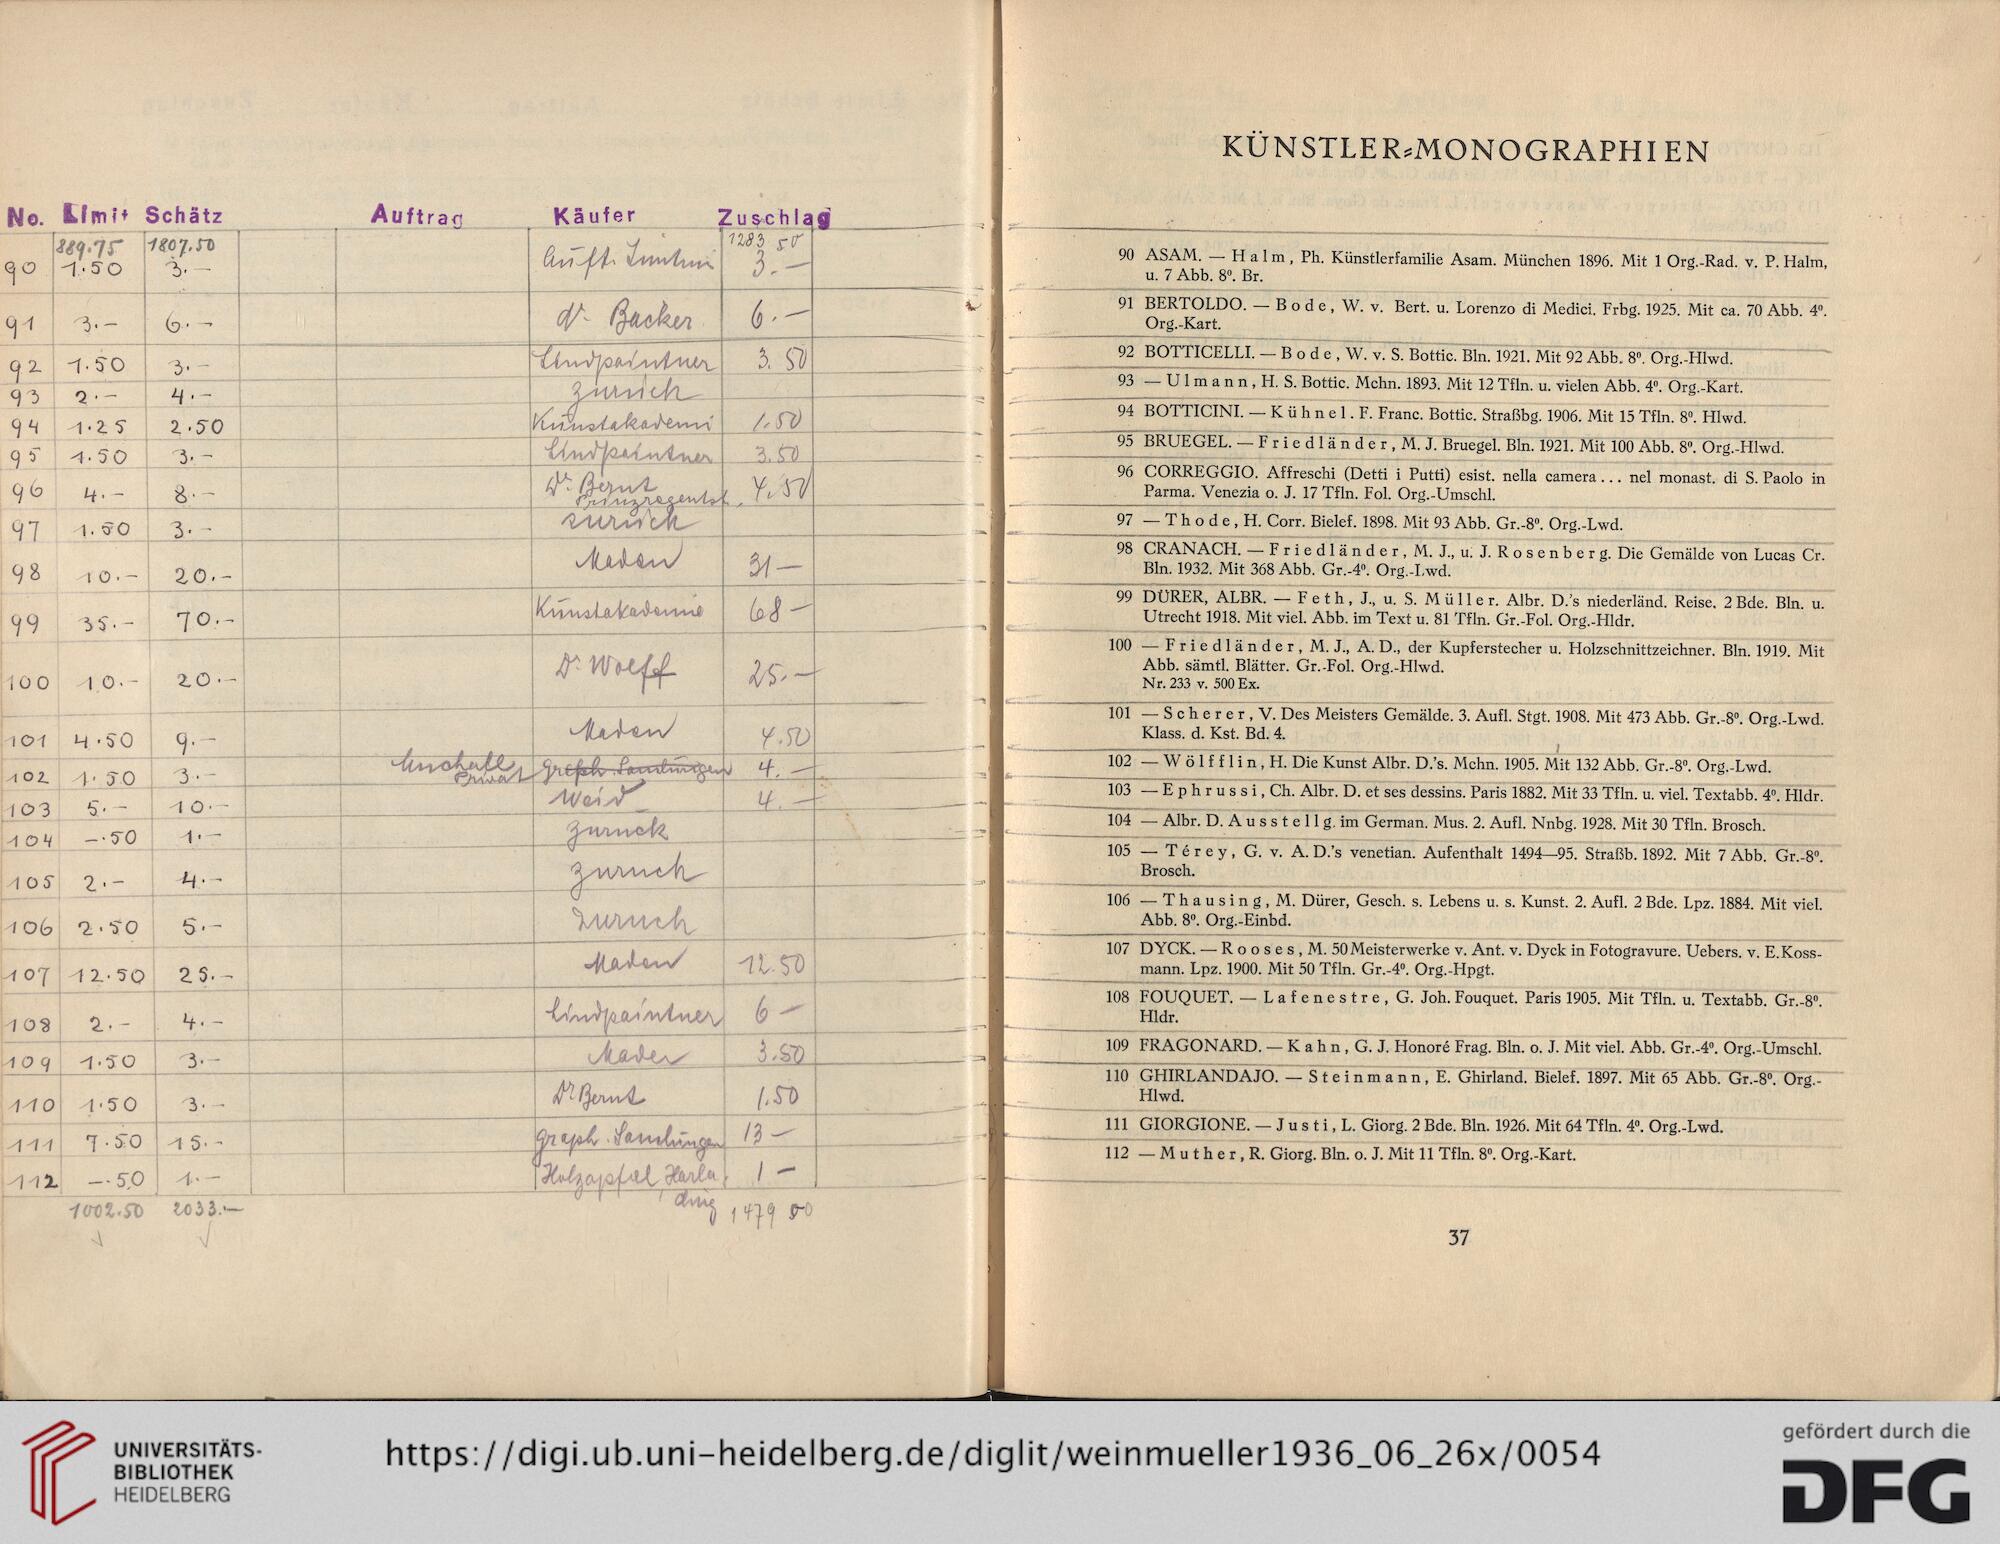 No. Limit Schätz Auftrag Käufer Zuschlag
889.75 1807.50 1283 50
90 1.50 3.— Auft. 3.—
91 3.— 6.— Dr. Backer 6.—
92 1.50 3.— Lindpaintner 3.50
93 2.— 4.— zurück
94 1.25 2.50 Kunstakademi 1.50
95 1.50 3.— Lindpaintner 3.50
96 4.— 8.— Dr. Bernt 4.50
Prinzregentst.
97 1.50 3.— zurück
98 10.— 20.— 31—
99 35.— 70.— Kunstakademie 68—
100 10.— 20.— Dr. Wolff 25.—
101 4.50 9.— 4.50
102 1.50 3.— Privat Graph. Samlungen 4.—
103 5.— 10.— Weid 4.—
104 —.50 1.— zurück
105 2.— 4.— zurück
106 2.50 5.— zurück
107 12.50 25.— 12.50
108 2.— 4.— Lindpaintner 6—
109 1.50 3.— 3.50
110 1.50 3.— Dr Bernt 1.50
111 7.50 15.— Graph. Samlungen 13—
112 —.50 1.— Holzapfel Harla- 1—
ding
1002.50 2033.— 1479 50
KÜNSTLER-MONOGRAPHIEN
90 ASAM. — Halm, Ph. Künstlerfamilie Asam. München 1896. Mit 1 Org.-Rad. v. P. Halm,
u. 7 Abb. 8°. Br.
91 BERTOLDO. — Bode, W. v. Bert. u. Lorenzo di Medici. Frbg. 1925. Mit ca. 70 Abb. 4°.
Org.-Kart.
92 BOTTICELLI. — Bode, W. v. S. Bottic. Bln. 1921. Mit 92 Abb. 8°. Org.-Hlwd.
93 — Ulmann, H. S. Bottic. Mchn. 1893. Mit 12 Tfln. u. vielen Abb. 4°. Org.-Kart.
94 BOTTICINI. — Kühnel. F. Franc. Bottic. Straßbg. 1906. Mit 15 Tfln. 8°. Hlwd.
95 BRUEGEL. — Friedländer, M. J. Bruegel. Bln. 1921. Mit 100 Abb. 8°. Org.-Hlwd.
96 CORREGGIO. Affreschi (Detti i Putti) esist. nella camera... nel monast. di S. Paolo in
Parma. Venezia o. J. 17 Tfln. Fol. Org.-Umschl.
97 — Thode, H. Corr. Bielef. 1898. Mit 93 Abb. Gr.-8°. Org.-Lwd.
98 CRANACH. — Friedländer, M. J., u. J. Rosenberg. Die Gemälde von Lucas Cr.
Bln. 1932. Mit 368 Abb. Gr.-4°. Org.-Lwd.
99 DÜRER, ALBR. — Feth, J., u. S. Müller. Albr. D.'s niederländ. Reise. 2 Bde. Bln. u.
Utrecht 1918. Mit viel. Abb. im Text u. 81 Tfln. Gr.-Fol. Org.-Hldr.
100 — Friedländer, M. J., A. D., der Kupferstecher u. Holzschnittzeichner. Bln. 1919. Mit
Abb. sämtl. Blätter. Gr.-Fol. Org.-Hlwd.
Nr. 233 v. 500 Ex.
101 — Scherer, V. Des Meisters Gemälde. 3. Aufl. Stgt. 1908. Mit 473 Abb. Gr.-8°. Org.-Lwd.
Klass. d. Kst. Bd. 4.
102 — Wölfflin, H. Die Kunst Albr. D.'s. Mchn. 1905. Mit 132 Abb. Gr.-8°. Org.-Lwd.
103 — Ephrussi, Ch. Albr. D. et ses dessins. Paris 1882. Mit 33 Tfln. u. viel. Textabb. 4°. Hldr.
104 — Albr. D. Ausstellg. im German. Mus. 2. Aufl. Nnbg. 1928. Mit 30 Tfln. Brosch.
105 — Térey, G. v. A. D.'s venetian. Aufenthalt 1494—95. Straßb. 1892. Mit 7 Abb. Gr.-8°.
Brosch.
106 — Thausing, M. Dürer, Gesch. s. Lebens u. s. Kunst. 2. Aufl. 2 Bde. Lpz. 1884. Mit viel.
Abb. 8°. Org.-Einbd.
107 DYCK. — Rooses, M. 50 Meisterwerke v. Ant. v. Dyck in Fotogravure. Uebers. v. E. Koss-
mann. Lpz. 1900. Mit 50 Tfln. Gr.-4°. Org.-Hpgt.
108 FOUQUET. — Lafenestre, G. Joh. Fouquet. Paris 1905. Mit Tfln. u. Textabb. Gr.-8°.
Hldr.
109 FRAGONARD. — Kahn, G. J. Honoré Frag. Bln. o. J. Mit viel. Abb. Gr.-4°. Org.-Umschl.
110 GHIRLANDAJO. — Steinmann, E. Ghirland. Bielef. 1897. Mit 65 Abb. Gr.-8°. Org.-
Hlwd.
111 GIORGIONE. — Justi, L. Giorg. 2 Bde. Bln. 1926. Mit 64 Tfln. 4°. Org.-Lwd.
112 — Muther, R. Giorg. Bln. o. J. Mit 11 Tfln. 8°. Org.-Kart.
37
UNIVERSITÄTS-
BIBLIOTHEK
HEIDELBERG
https://digi.ub.uni-heidelberg.de/diglit/weinmueller1936_06_26x/0054
gefördert durch die
DFG